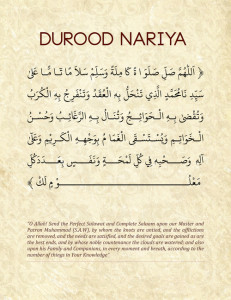 DUROOD NARIYA
﴿ اَللّٰهُمَّ صَلِّ صَلَوٰةً كَامِلَةً وَسَلِّمْ سَلَامًا تَامًّا عَلٰی
سَيِّدِنَا مُحَمَّدِ الَّذِي تَنْحَلُّ بِهِ الْعُقَدُ وَتَنْفَرِجُ بِهِ الْكُرَبُ
وَتُقْضٰی بِهِ الْحَوَائِجُ وَتُنَالُ بِهِ الرَّغَائِبُ وَحُسْنُ
الْخَوَاتِمِ وَيُسْتَسْقَی الْغَمَامُ بِوَجْهِهِ الْكَرِيْمِ وَعَلٰی
آلِهِ وَصَحْبِهِ فِي كُلِّ لَمْحَةٍ وَنَفَسٍ بِعَدَدِ كُلِّ
مَعْلُوْمٍ لَكَ ﴾
"O Allah! Send the Perfect Salawat and Complete Salaam upon our Master and
Patron Muhammad (S.A.W), by whom the knots are untied, and the afflictions
are removed, and the needs are satisfied, and the desired goals are gained as are
the best ends, and by whose noble countenance the clouds are watered; and also
upon his Family and Companions, in every moment and breath, according to the
number of things in Your Knowledge"